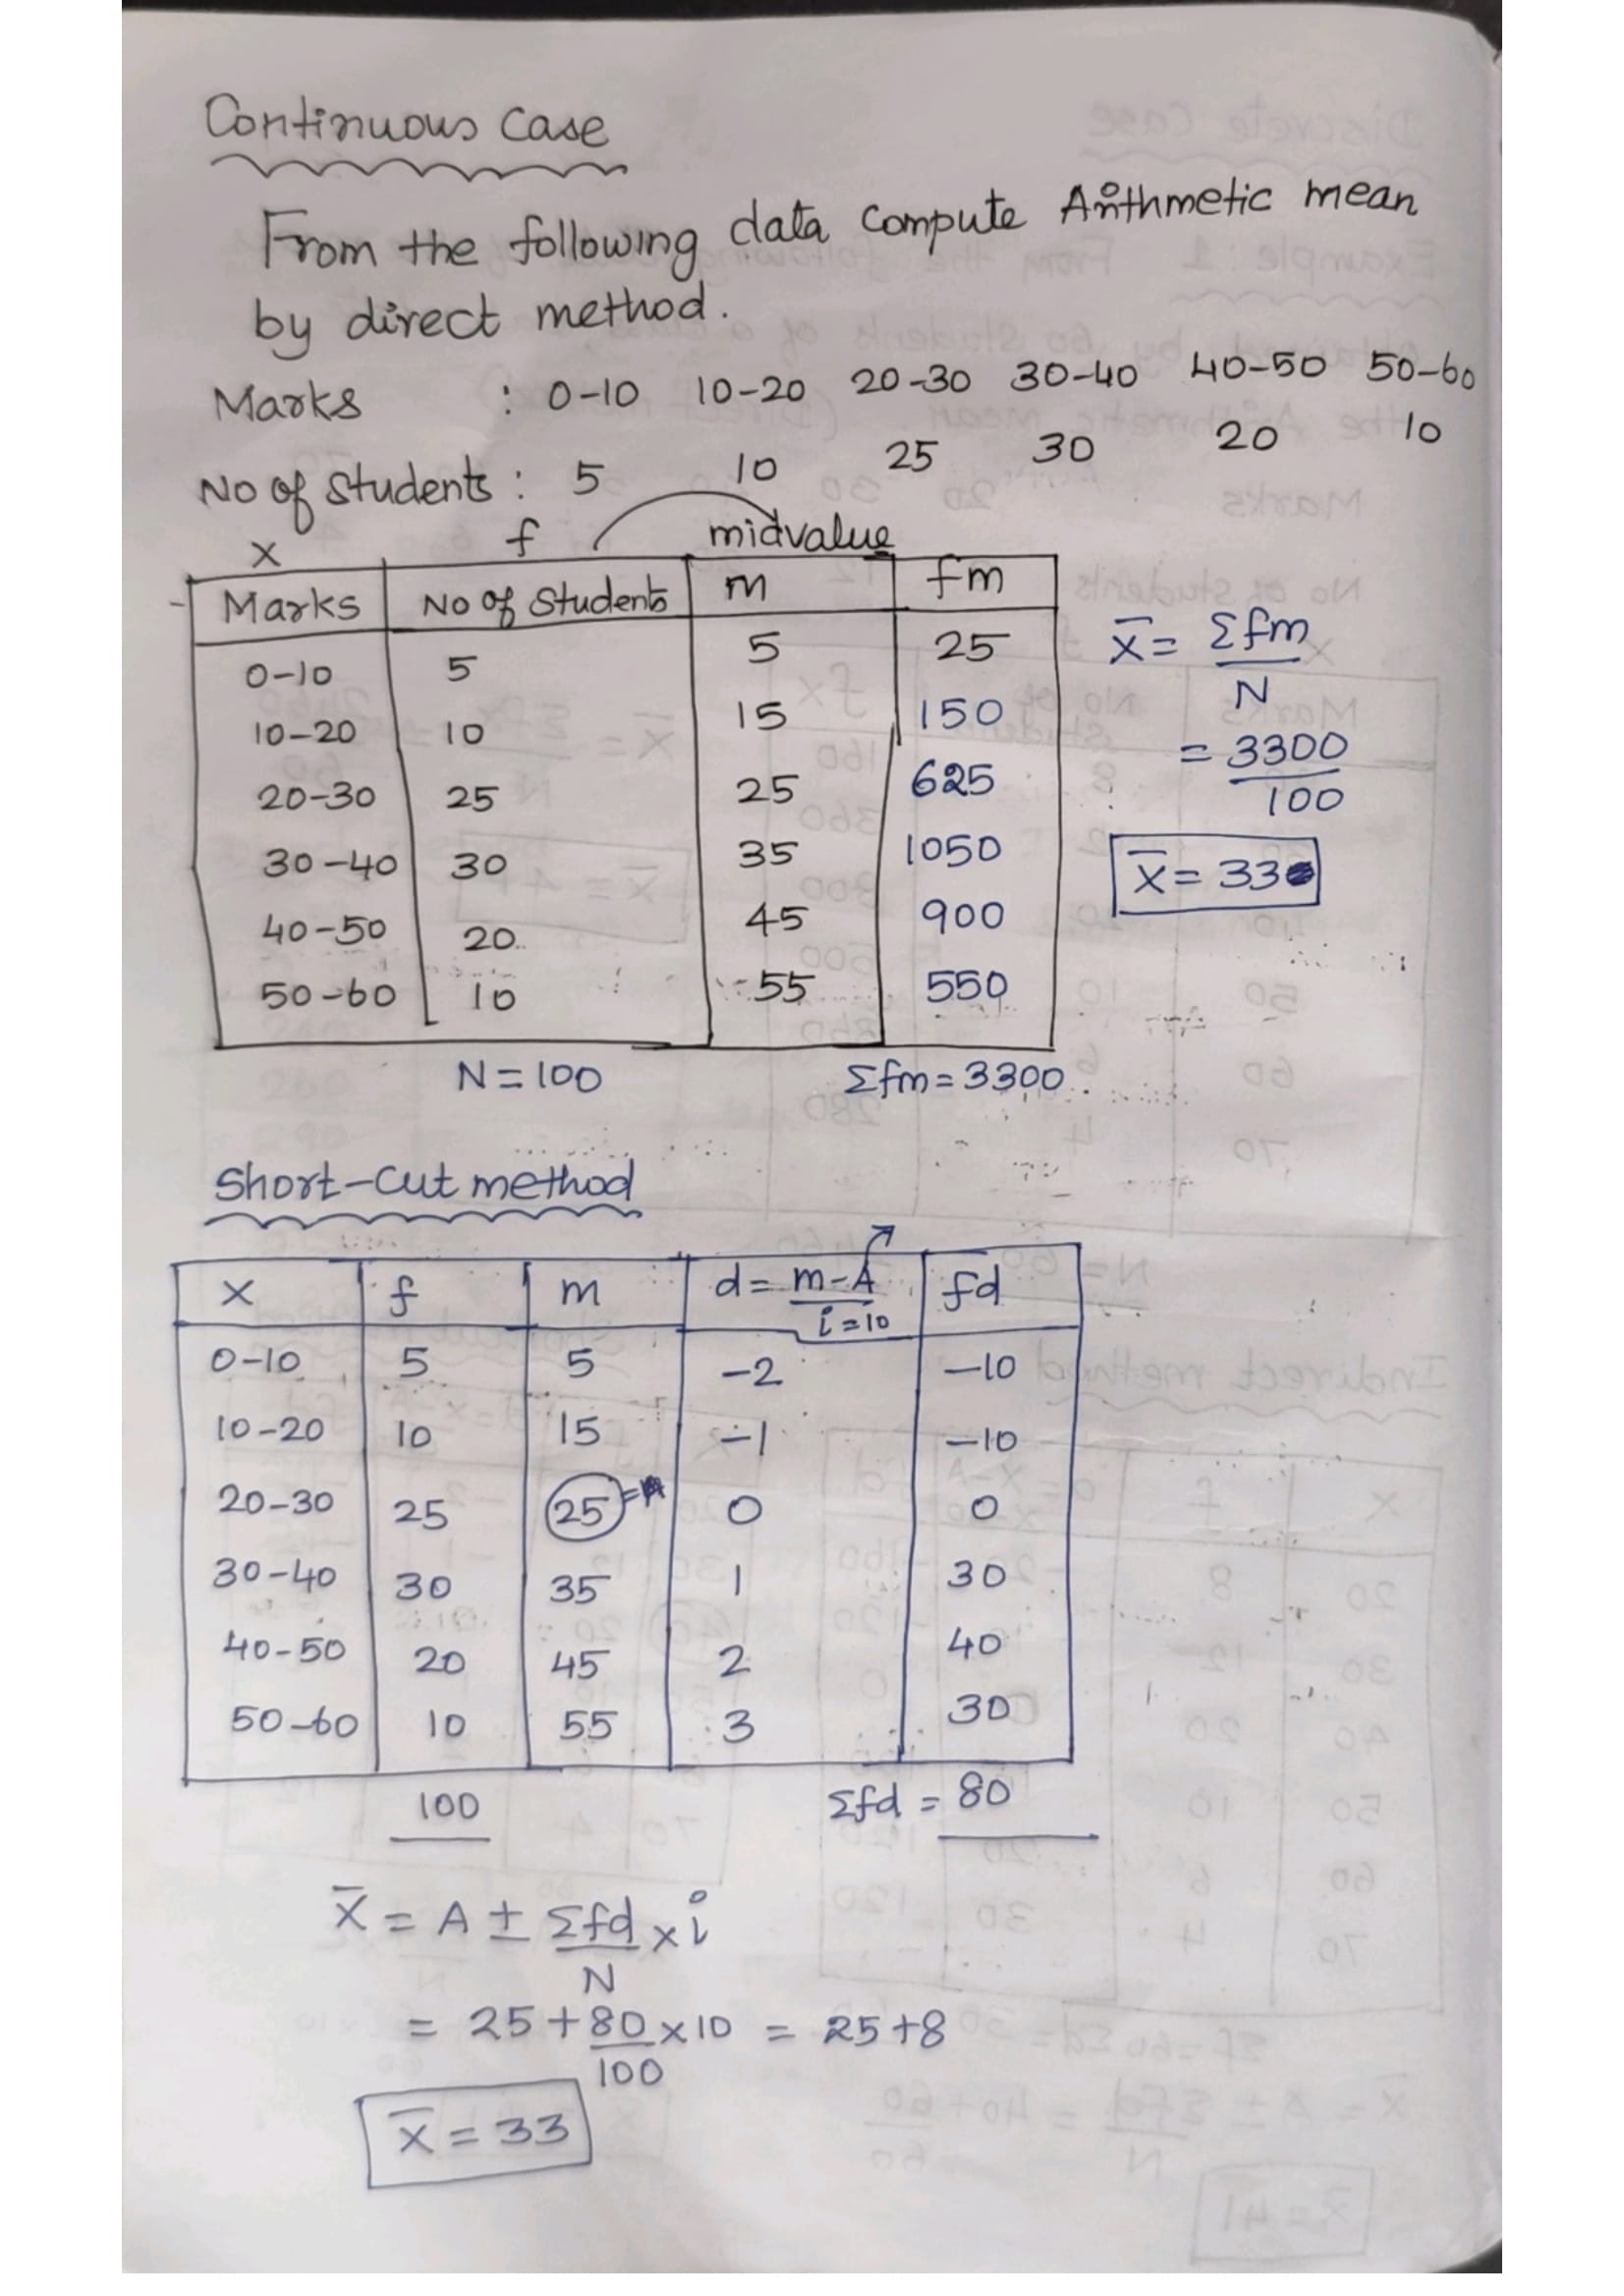 Continuous Case
From the following data compute Arithmetic mean
by direct method.
Marks : 0-10 10-20 20-30 30-40 40-50 50-60
No of Students : 5 10 25 30 20 10
x f midvalue
Marks No of Students m fm
0-10 5 5 25
10-20 10 15 150
20-30 25 25 625
30-40 30 35 1050
40-50 20 45 900
50-60 10 55 550
N=100 Σfm=3300
x̄ = Σfm/N
= 3300/100
x̄ = 33
Short-Cut method
x f m d = m-A/i=10 fd
0-10 5 5 -2 -10
10-20 10 15 -1 -10
20-30 25 25=A 0 0
30-40 30 35 1 30
40-50 20 45 2 40
50-60 10 55 3 30
100 Σfd = 80
x̄ = A ± Σfd/N × i
= 25+80/100×10 = 25+8
x̄ = 33